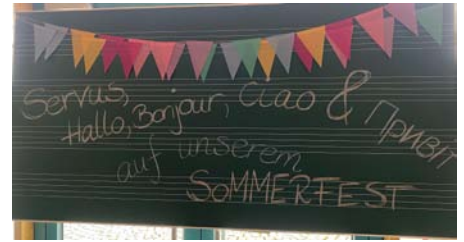 Servus,
Hallo, Bonjour, Ciao & Привіт
auf unserem
SOMMERFEST